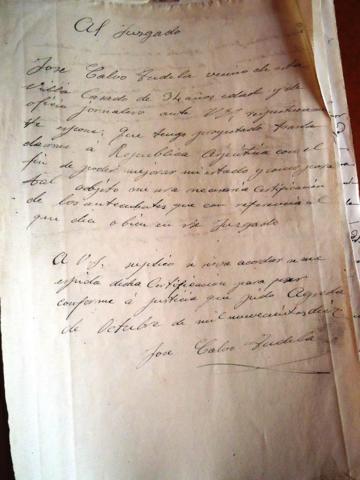 Al Juzgado
Jose Calvo Tudela vecino de esta
Villa Casado de 34 años edad y de
oficio jornalero ante V.S. respetuosamen
te espone: que tengo proyectado trasla
darme a Republica Argentina con el
fin de poder mejorar mi estado y como para
tal objeto me sea necesaria Certificación
de los antecedentes que con referencia al
que dice o bien en ese Juzgado
A V.S. suplico se sirva acordar se me
espida dicha Certificación para
conforme á justicia que pido Agreda
de Octubre de mil novecientos diez
Jose Calvo Tudela